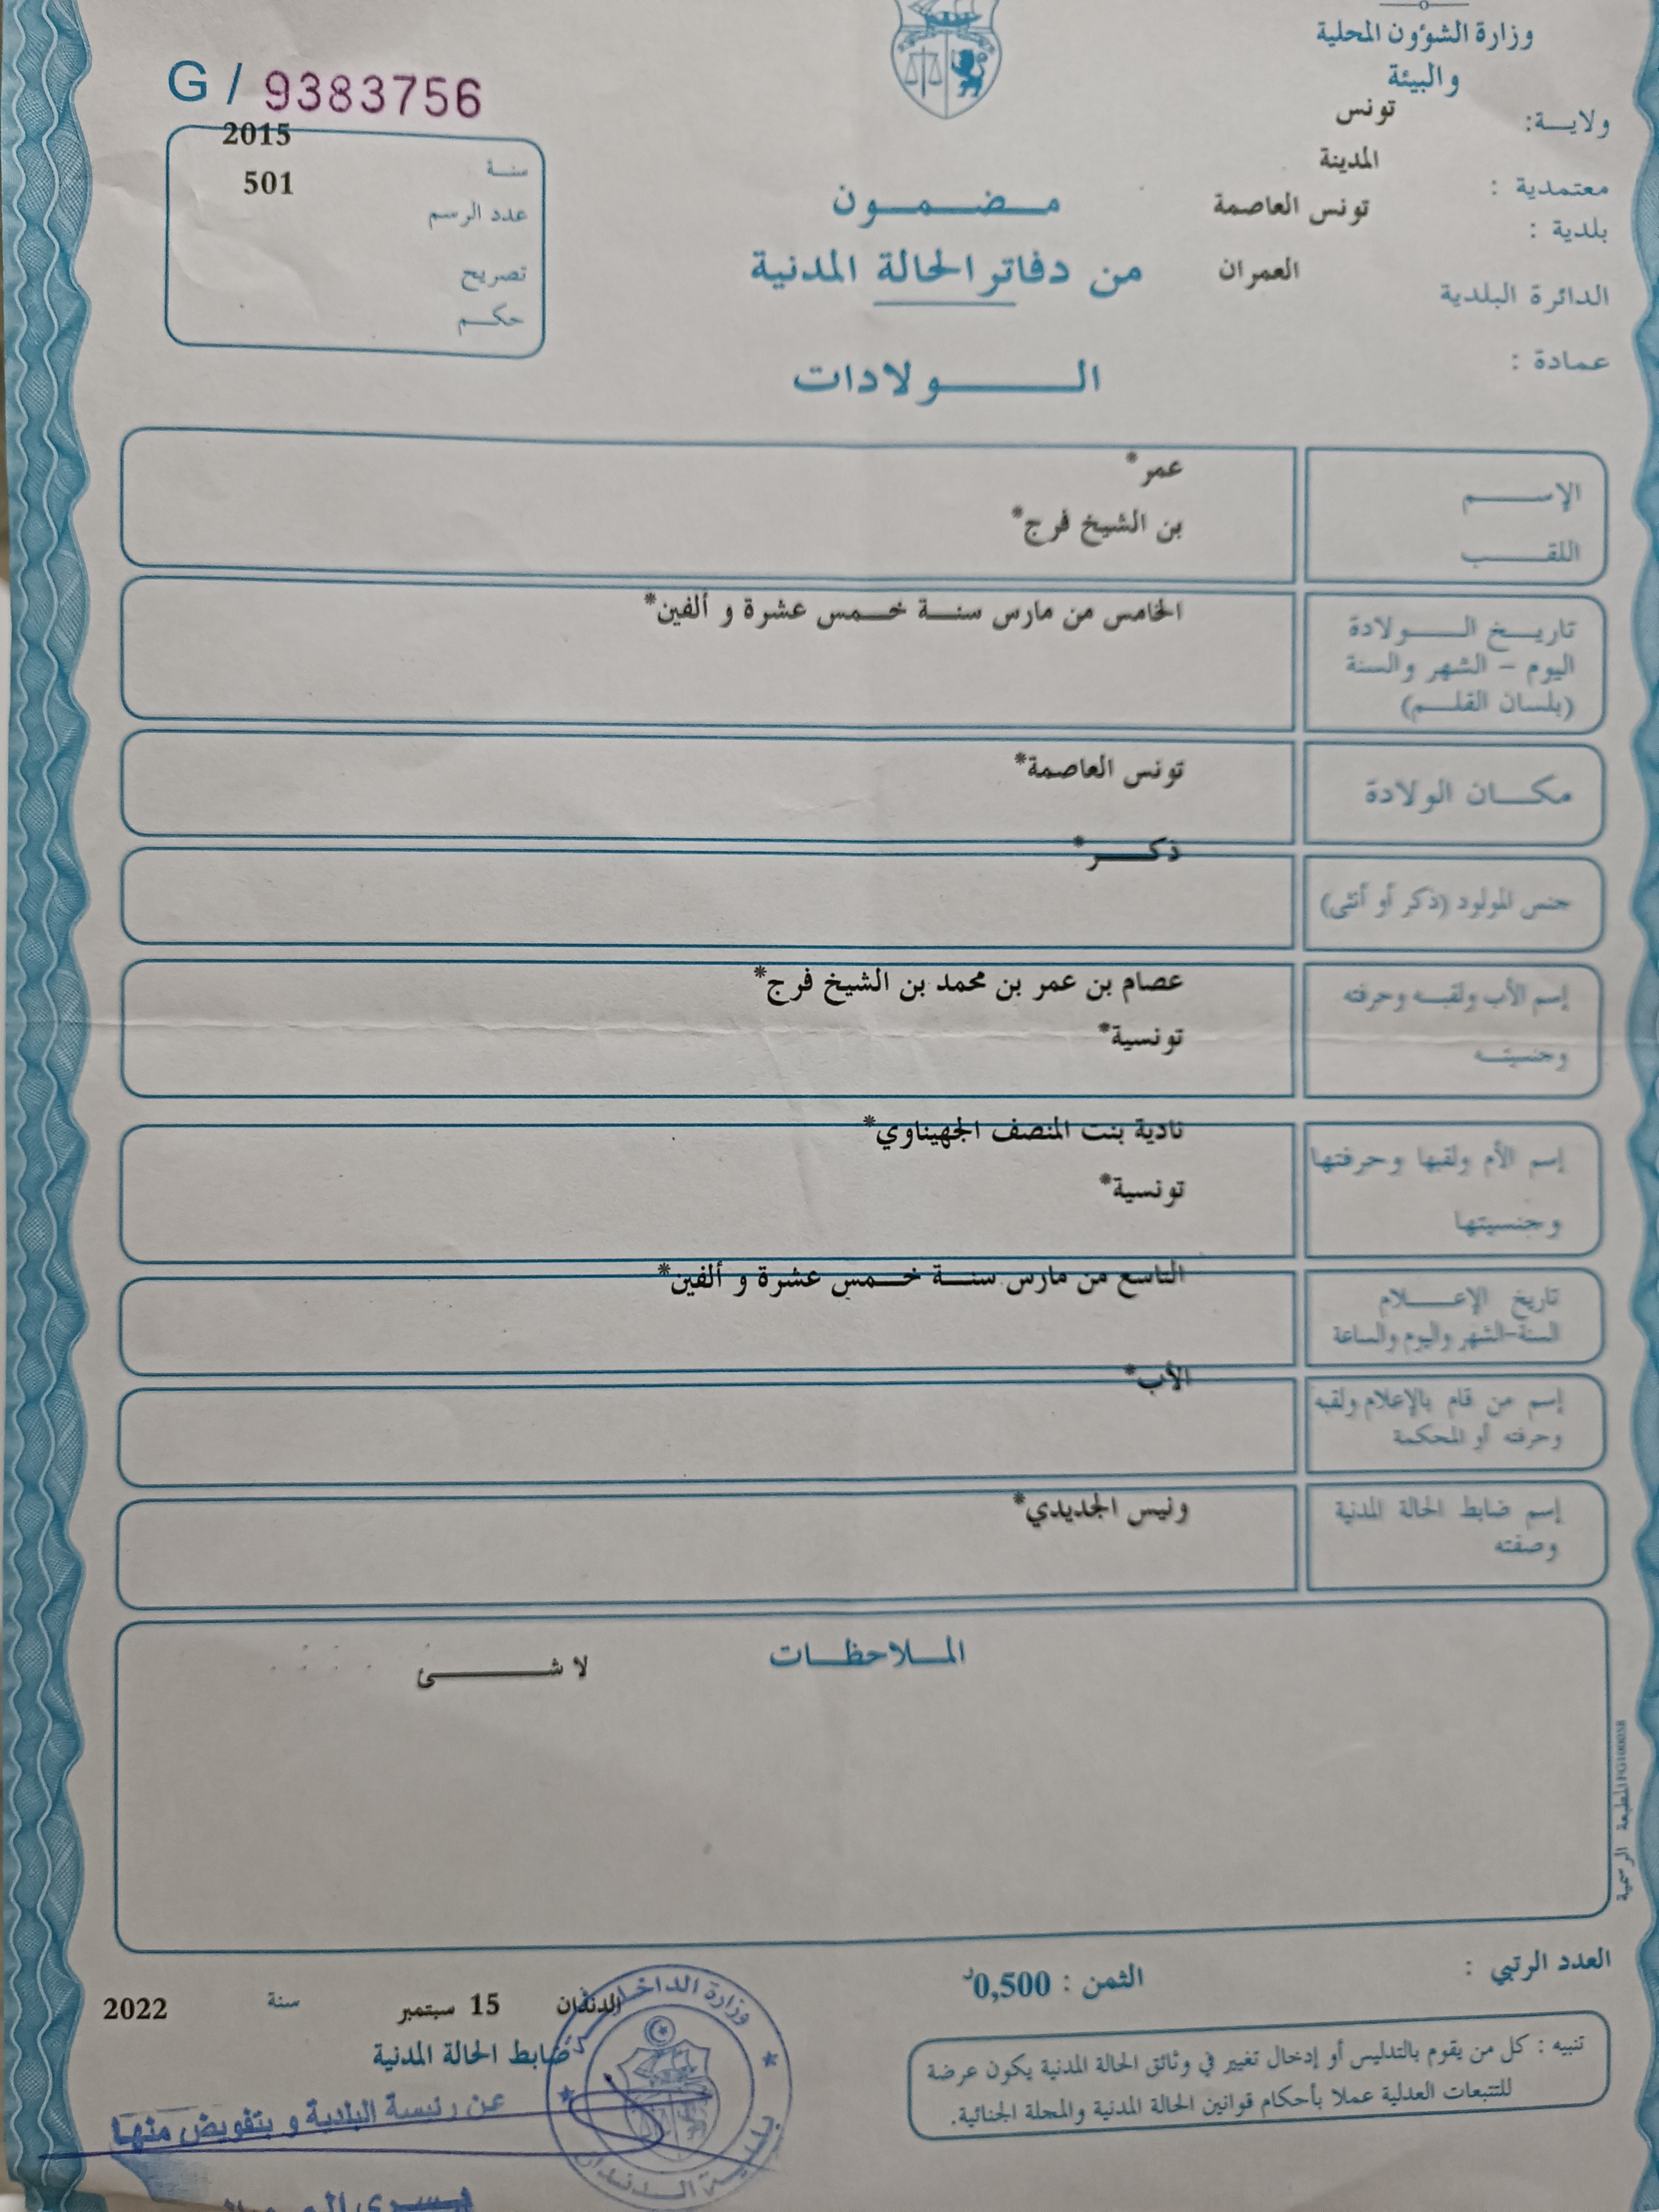 وزارة الشؤون المحلية
والبيئة
G / 9383756
ولايـــة: تونس
معتمدية : المدينة
بلدية : تونس العاصمة
الدائرة البلدية العمران
عمادة :
سنــة 2015
عدد الرسم 501
تصريح
حكــم
مـــضـــمـــون
من دفاتر الحالة المدنية
الـــــولادات
الإســـــم عمر*
اللقـــــب بن الشيخ فرج*
تاريـــخ الـــــولادة
اليوم – الشهر والسنة
(بلسان القلـــم)
الخامس من مارس سنــة خــمس عشرة و ألفين*
مكـــان الولادة تونس العاصمة*
جنس المولود (ذكر أو أنثى) ذكـــر*
إسم الأب ولقبــه وحرفته
وجنسيتــه
عصام بن عمر بن محمد بن الشيخ فرج*
تونسية*
إسم الأم ولقبها وحرفتها
وجنسيتها
نادية بنت المنصف الجهيناوي*
تونسية*
تاريخ الإعـــــلام
السنة-الشهر واليوم والساعة
التاسع من مارس سنــة خــمس عشرة و ألفين*
إسم من قام بالإعلام ولقبه
وحرفته أو المحكمة
الأب*
إسم ضابط الحالة المدنية
وصفته
ونيس الجديدي*
المـــلاحظـــات
لا شـــــئ
المطبعة الرسمية
العدد الرتبي :
الثمن : 0,500د
الدندان 15 سبتمبر سنة 2022
ضابط الحالة المدنية
تنبيه : كل من يقوم بالتدليس أو إدخال تغيير في وثائق الحالة المدنية يكون عرضة
للتتبعات العدلية عملا بأحكام قوانين الحالة المدنية والمجلة الجنائية.
عن رئيسة البلدية و بتفويض منها
وزارة الداخلية
بلدية الدندان